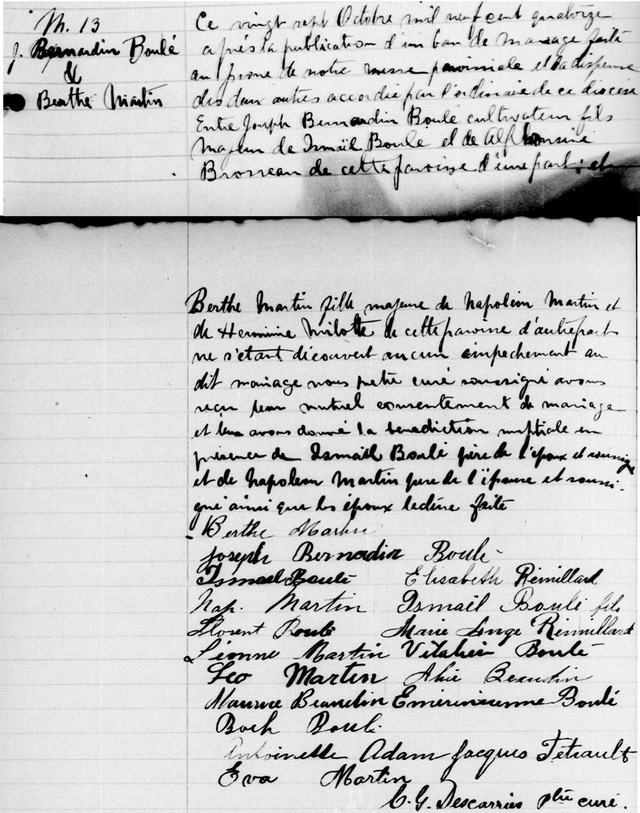 M. 13
J. Bernardin Boulé
&
Berthe Martin
Ce vingt sept Octobre mil neuf cent quatorze
après la publication d'un ban de mariage faite
au prone de notre messe paroissiale et la dispense
des deux autres accordée par l'ordinaire de ce diocèse
Entre Joseph Bernardin Boulé cultivateur fils
majeur de Ismaël Boulé et de Alphonsine
Brosseau de cette paroisse d'une part; et
Berthe Martin fille majeure de Napoléon Martin et
de Hermine Milotte de cette paroisse d'autre part
ne s'étant découvert aucun empechement au
dit mariage nous prêtre curé soussigné avons
reçu leur mutuel consentement de mariage
et leur avons donné la benediction nuptiale en
présence de Ismaël Boulé père de l'époux et soussigné
et de Napoléon Martin père de l'épouse et soussi-
gné ainsi que les époux lecture faite
Berthe Martin
Joseph Bernadin Boulé
Ismael Boulé Elisabeth Rémillard
Nap. Martin Ismaël Boulé fils
Florent Boulé Marie Ange Rémillard
Léonne Martin Vitalien Boulé
Leo Martin Beaudin
Maurice Beaudin Emérencienne Boulé
Roch Boulé
Antoinette Adam Jacques Tetrault
Eva Martin
C. G. Descarries ptre curé.